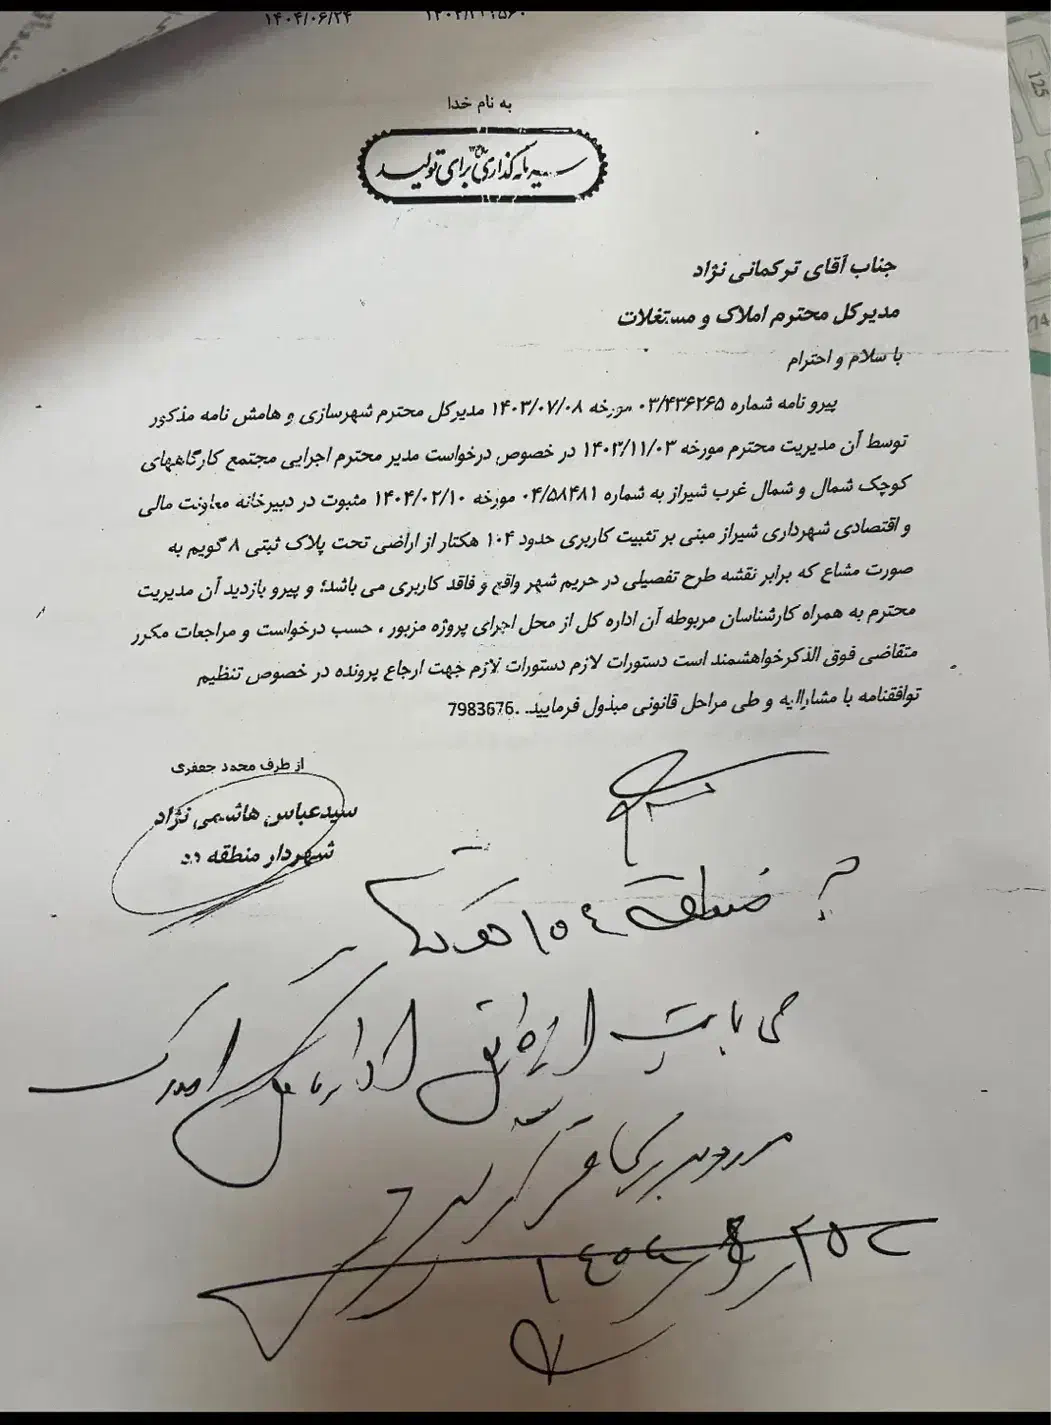 ۱۴۰۴/۰۶/۲۴
به نام خدا
سرمایه گذاری برای تولید
جناب آقای ترکمانی نژاد
مدیرکل محترم املاک و مستغلات
با سلام و احترام
پیرو نامه شماره ۰۳/۴۳۶۲۶۵ مورخه ۱۴۰۳/۰۷/۰۸ مدیرکل محترم شهرسازی و هامش نامه مذکور
توسط آن مدیریت محترم مورخه ۱۴۰۳/۱۱/۰۳ در خصوص درخواست مدیر محترم اجرایی مجتمع کارگاههای
کوچک شمال و شمال غرب شیراز به شماره ۰۴/۵۸۴۸۱ مورخه ۱۴۰۴/۰۲/۱۰ مثبوت در دبیرخانه معاونت مالی
و اقتصادی شهرداری شیراز مبنی بر تثبیت کاربری حدود ۱۰۴ هکتار از اراضی تحت پلاک ثبتی ۸ گویم به
صورت مشاع که برابر نقشه طرح تفصیلی در حریم شهر واقع و فاقد کاربری می باشد؛ و پیرو بازدید آن مدیریت
محترم به همراه کارشناسان مربوطه آن اداره کل از محل اجرای پروژه مزبور ، حسب درخواست و مراجعات مکرر
متقاضی فوق الذکرخواهشمند است دستورات لازم دستورات لازم جهت ارجاع پرونده در خصوص تنظیم
توافقنامه با مشارالیه و طی مراحل قانونی مبذول فرمایید. .7983676
از طرف محمد جعفری
سیدعباس هاشمی نژاد
شهردار منطقه ده
به منطقه ۱۰
می بایست از طریق اداره کل املاک